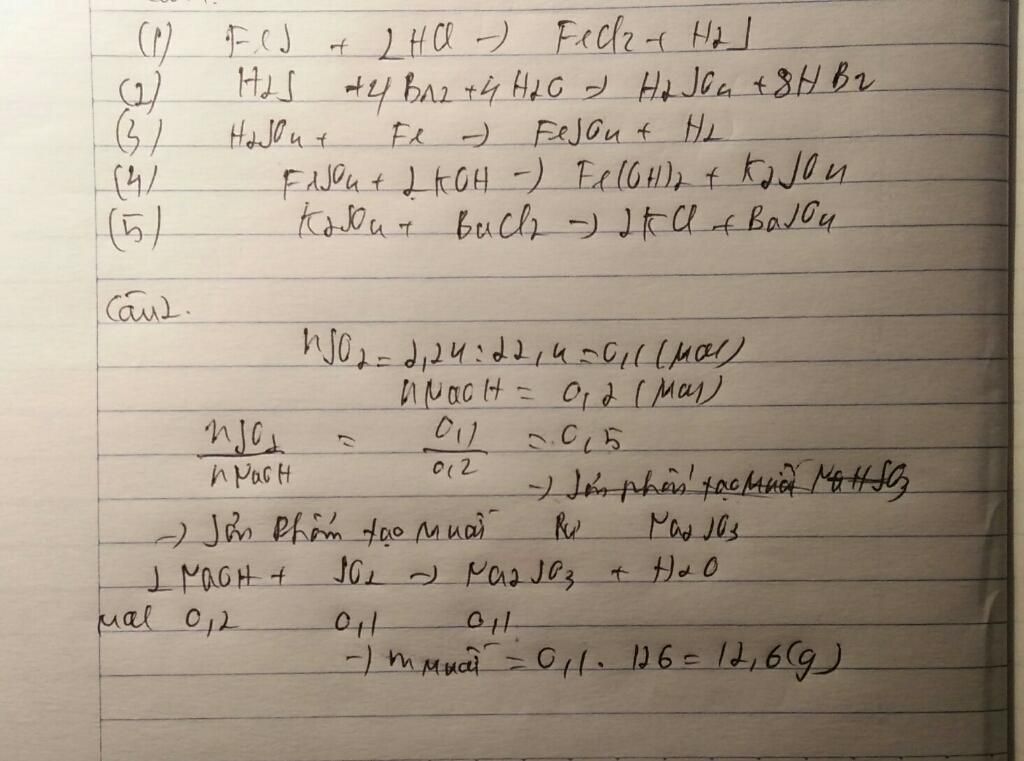 (1) FeS + 2HCl → FeCl2 + H2S
(2) H2S + 4Br2 + 4H2O → H2SO4 + 8HBr
(3) H2SO4 + Fe → FeSO4 + H2
(4) FeSO4 + 2KOH → Fe(OH)2 + K2SO4
(5) K2SO4 + BaCl2 → 2KCl + BaSO4
Câu2.
nSO2 = 2,24 : 22,4 = 0,1 (mol)
nNaOH = 0,2 (mol)
nSO2 / nNaOH = 0,1 / 0,2 = 0,5
→ Sản phẩm tạo muối NaHSO3
→ Sản phẩm tạo muối Na2SO3
2NaOH + SO2 → Na2SO3 + H2O
mol 0,2 0,1 0,1
→ m muối = 0,1 . 126 = 12,6(g)